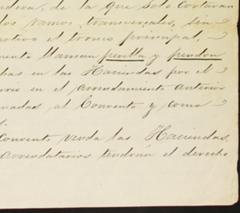 dera, de la que solo cortaran
los ramos transversales, sin
motivo el tronco principal,
menta llaman perilla y pendon
chas en las Haciendas por el
orio en el arrendamiento anterior
nadas al Convento y como
Convento venda las Haciendas,
arrendatarios tendrán el derecho